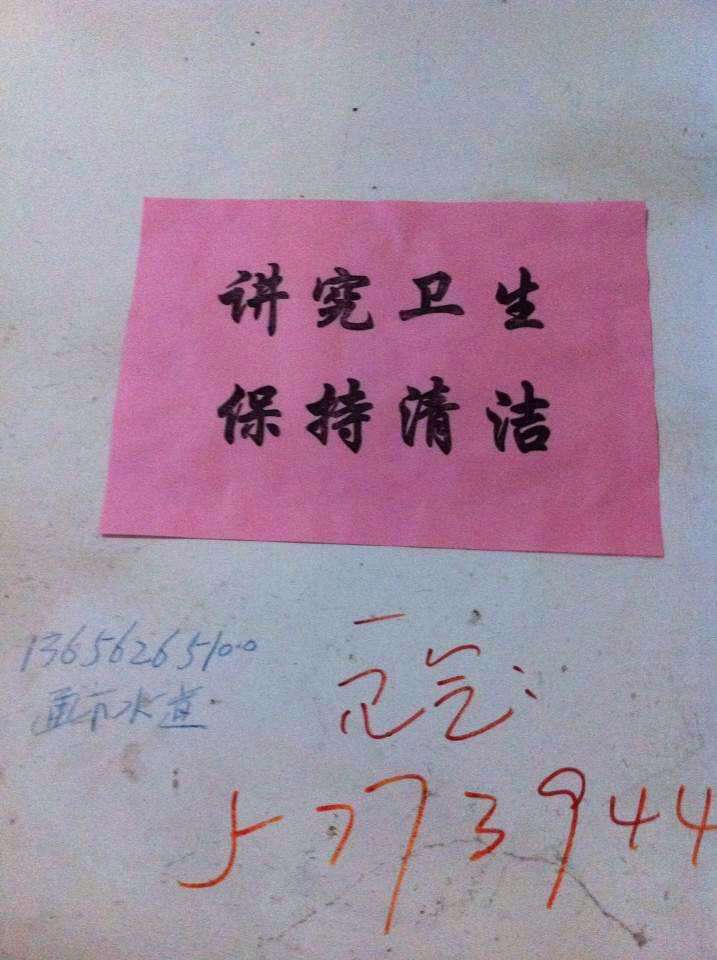 讲究卫生
保持清洁
13656265100
通下水道
煤气:
5773944